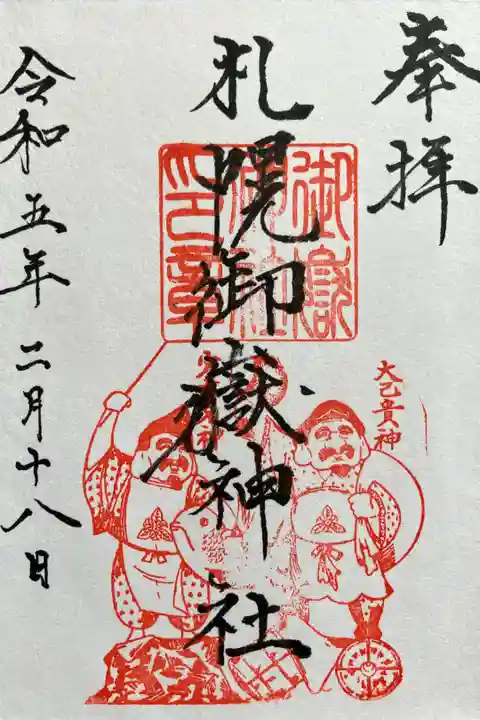 奉拝
札幌御嶽神社
御嶽
印章
大己貴神
令和五年二月十八日